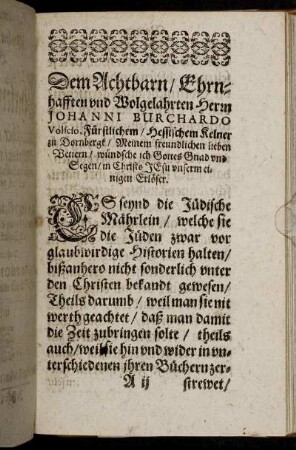 Dem Achtbarn/ Ehrn-
hafften vnd Wolgelahrten Herrn
JOHANNI BURCHARDO
Volscio. Fürstlichem/ Hessischem Kelner
zu Dornbergk/ Meinem freundlichen lieben
Vettern/ wündsche ich Gottes Gnad vnd
Segen/ in Christo JEsu vnserm ei-
nigen Erlöser.
ES seynd die Jüdische
Mährlein/ welche sie
die Jüden zwar vor
glaubwirdige Historien halten/
bißanhero nicht sonderlich vnter
den Christen bekandt gewesen/
Theils darumb/ weil man sie nit
werth geachtet/ daß man damit
die Zeit zubringen solte/ theils
auch/ weil sie hin vnd wider in vn-
terschiedenen jhren Büchern zer-
A ij strewet/